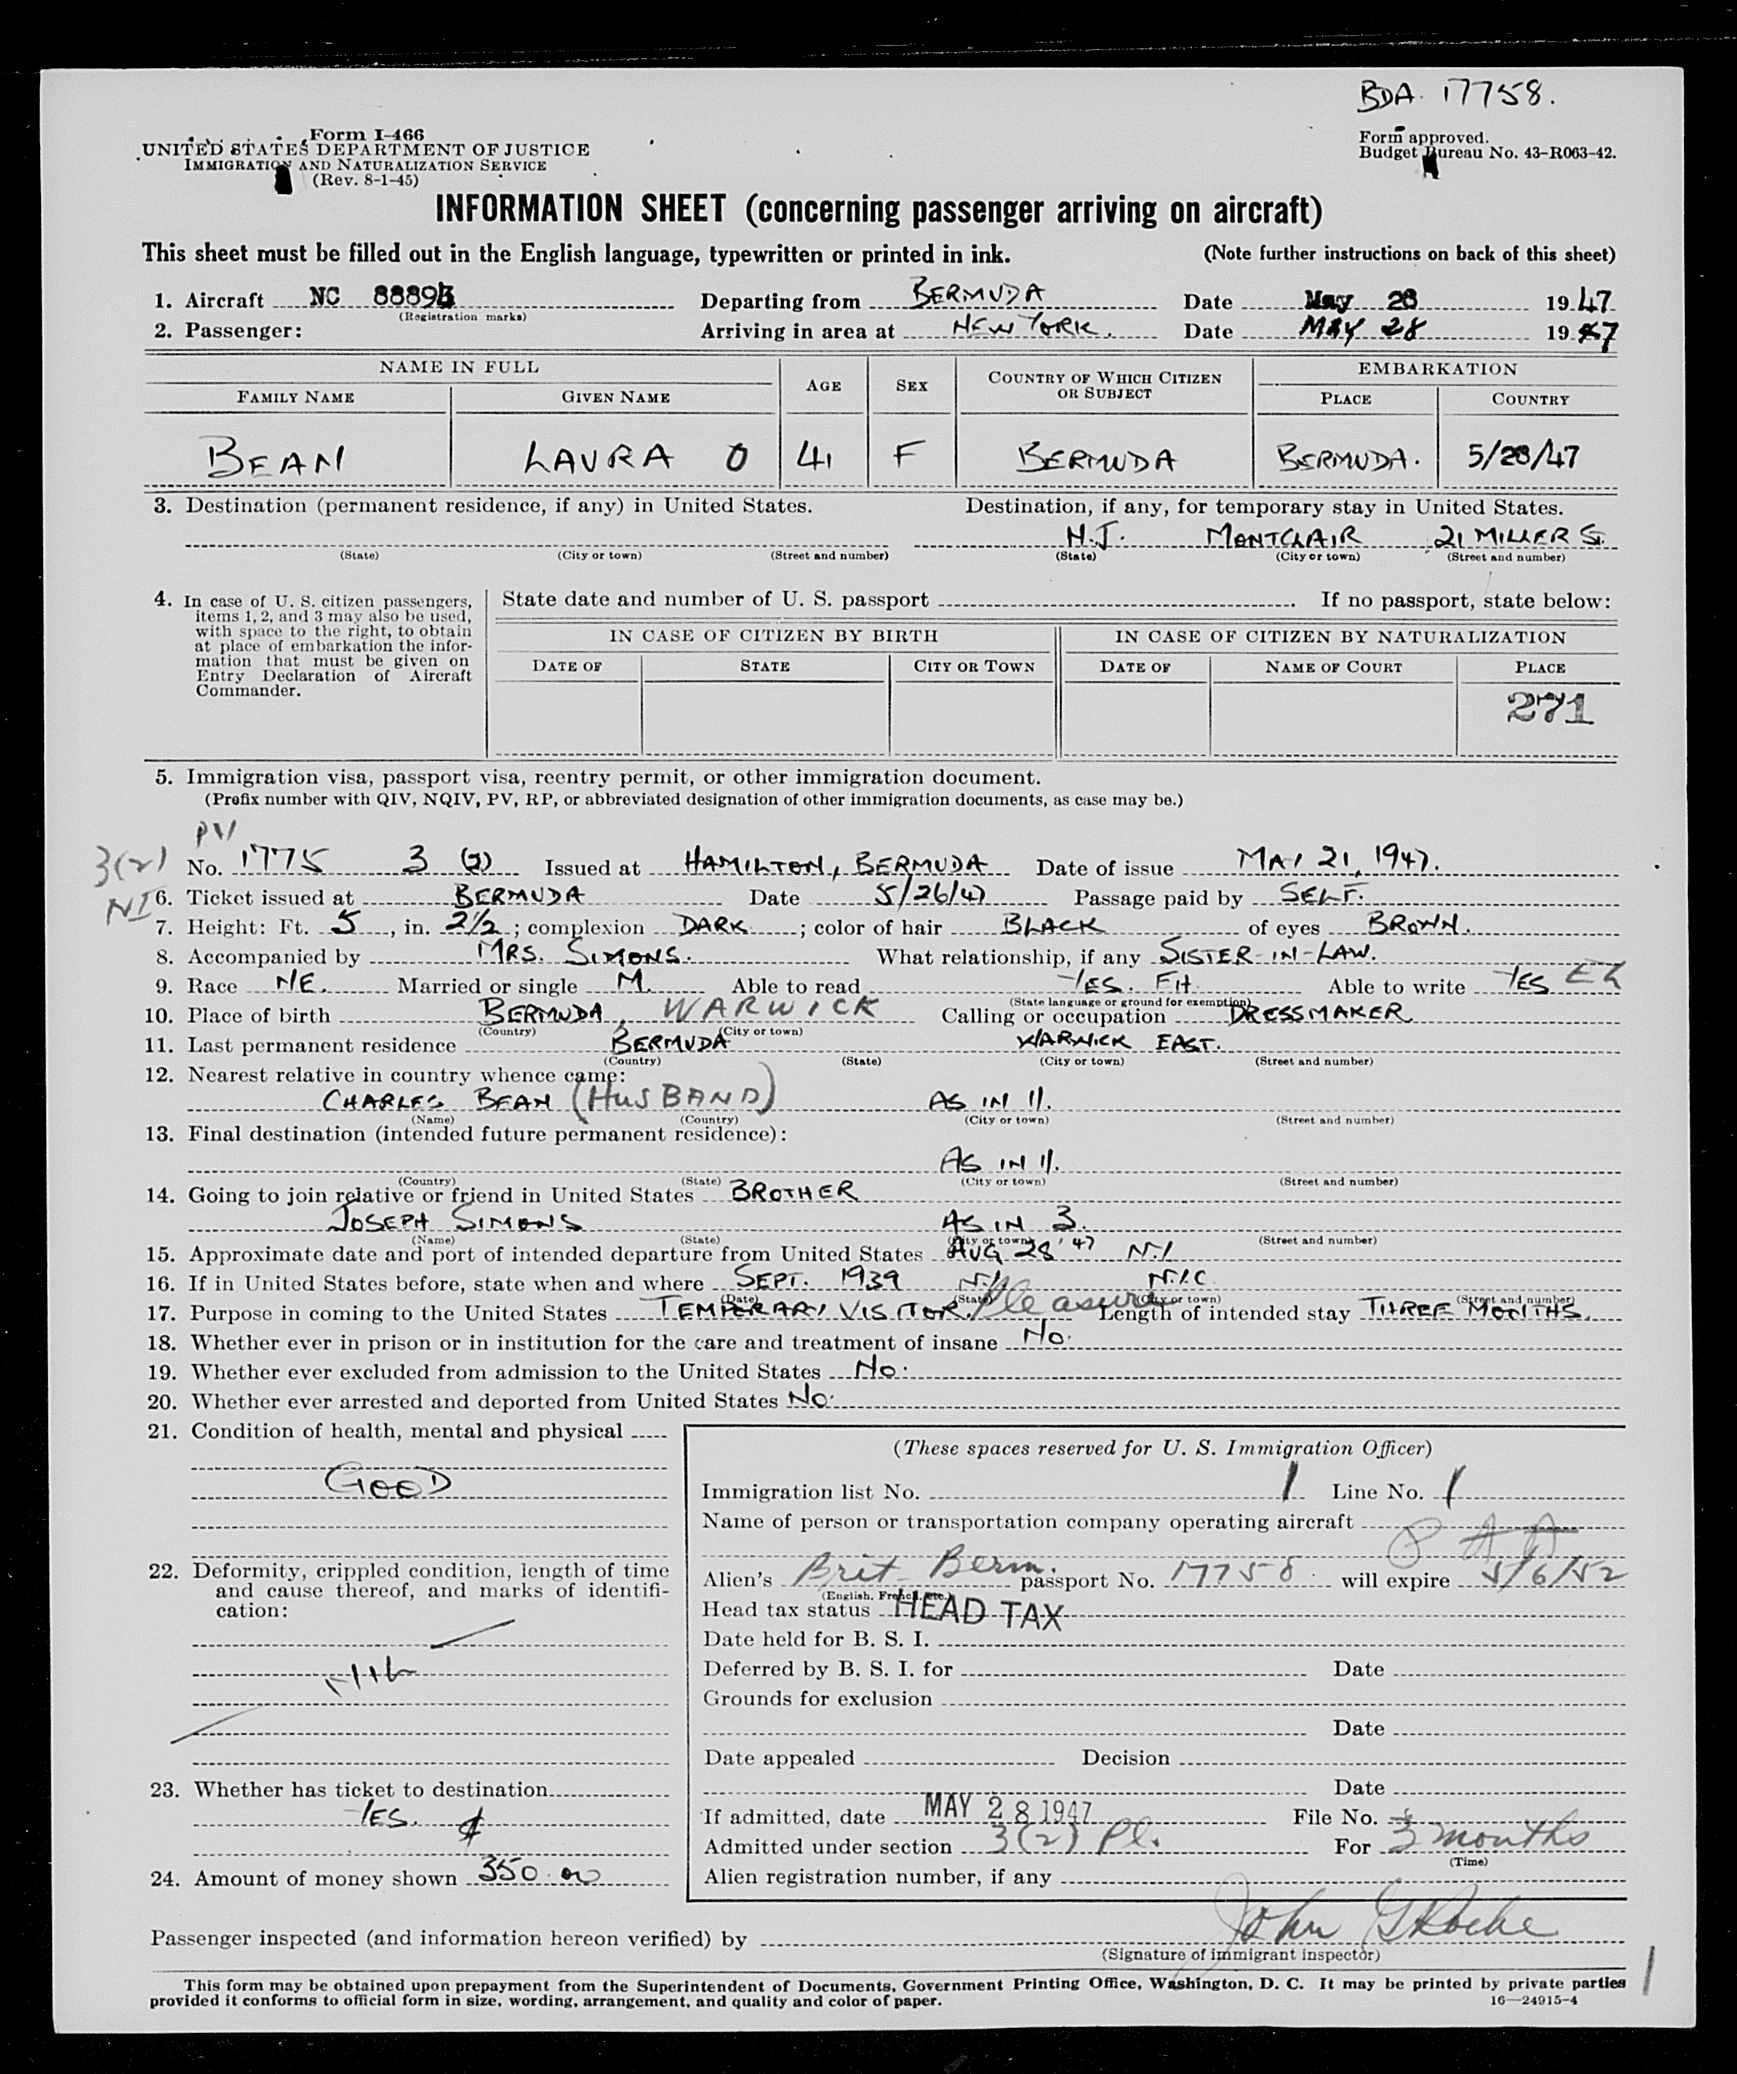 BDA. 17758.
Form I-466
UNITED STATES DEPARTMENT OF JUSTICE
IMMIGRATION AND NATURALIZATION SERVICE
(Rev. 8-1-45)
Form approved.
Budget Bureau No. 43-R063-42.
INFORMATION SHEET (concerning passenger arriving on aircraft)
This sheet must be filled out in the English language, typewritten or printed in ink. (Note further instructions on back of this sheet)
1. Aircraft NC Departing from BERMUDA Date May 28 1947
(Registration marks)
2. Passenger: Arriving in area at NEW YORK. Date MAY 28 1947
NAME IN FULL AGE SEX COUNTRY OF WHICH CITIZEN OR SUBJECT EMBARKATION
FAMILY NAME GIVEN NAME PLACE COUNTRY
BEAN LAURA O 41 F BERMUDA BERMUDA. 5/28/47
3. Destination (permanent residence, if any) in United States. Destination, if any, for temporary stay in United States.
N.J. MONTCLAIR 21 MILLER St.
(State) (City or town) (Street and number) (State) (City or town) (Street and number)
4. In case of U. S. citizen passengers, items 1, 2, and 3 may also be used, with space to the right, to obtain at place of embarkation the information that must be given on Entry Declaration of Aircraft Commander.
State date and number of U. S. passport . If no passport, state below:
IN CASE OF CITIZEN BY BIRTH IN CASE OF CITIZEN BY NATURALIZATION
DATE OF STATE CITY OR TOWN DATE OF NAME OF COURT PLACE
271
5. Immigration visa, passport visa, reentry permit, or other immigration document.
(Prefix number with QIV, NQIV, PV, RP, or abbreviated designation of other immigration documents, as case may be.)
PV
3(2) No. 1775 3 (2) Issued at HAMILTON, BERMUDA Date of issue MAY 21, 1947.
NI 6. Ticket issued at BERMUDA Date 5/26/47 Passage paid by SELF.
7. Height: Ft. 5, in. 2½; complexion DARK; color of hair BLACK of eyes BROWN.
8. Accompanied by MRS. SIMONS. What relationship, if any SISTER-IN-LAW.
9. Race NE. Married or single M. Able to read YES. Able to write YES
(State language or ground for exemption)
10. Place of birth BERMUDA, WARWICK Calling or occupation DRESSMAKER
(Country) (City or town)
11. Last permanent residence BERMUDA WARWICK EAST.
(Country) (State) (City or town) (Street and number)
12. Nearest relative in country whence came:
CHARLES BEAN (HUSBAND) AS IN 11.
(Name) (Country) (City or town) (Street and number)
13. Final destination (intended future permanent residence):
AS IN 11.
(Country) (State) (City or town) (Street and number)
14. Going to join relative or friend in United States BROTHER
JOSEPH SIMONS AS IN 3.
(Name) (State) (City or town) (Street and number)
15. Approximate date and port of intended departure from United States AUG 28 '47 N.Y
16. If in United States before, state when and where SEPT. 1939 N.Y N.Y.C
(Date) (State) (City or town) (Street and number)
17. Purpose in coming to the United States TEMPERARY VISITOR. Pleasure Length of intended stay THREE MONTHS.
18. Whether ever in prison or in institution for the care and treatment of insane No.
19. Whether ever excluded from admission to the United States No.
20. Whether ever arrested and deported from United States No.
21. Condition of health, mental and physical
GOOD
22. Deformity, crippled condition, length of time and cause thereof, and marks of identification:
NIL
23. Whether has ticket to destination
YES.
24. Amount of money shown 350.00
(These spaces reserved for U. S. Immigration Officer)
Immigration list No. 1 Line No. 1
Name of person or transportation company operating aircraft P A A
Alien's Brit - Berm. passport No. 17758 will expire 5/6/52
(English, French, etc.)
Head tax status HEAD TAX
Date held for B. S. I.
Deferred by B. S. I. for Date
Grounds for exclusion
Date
Date appealed Decision
Date
If admitted, date MAY 28 1947 File No.
Admitted under section 3(2) Pl. For 3 months
(Time)
Alien registration number, if any
Passenger inspected (and information hereon verified) by John G Roche
(Signature of immigrant inspector)
This form may be obtained upon prepayment from the Superintendent of Documents, Government Printing Office, Washington, D. C. It may be printed by private parties
provided it conforms to official form in size, wording, arrangement, and quality and color of paper. 16—24915-4